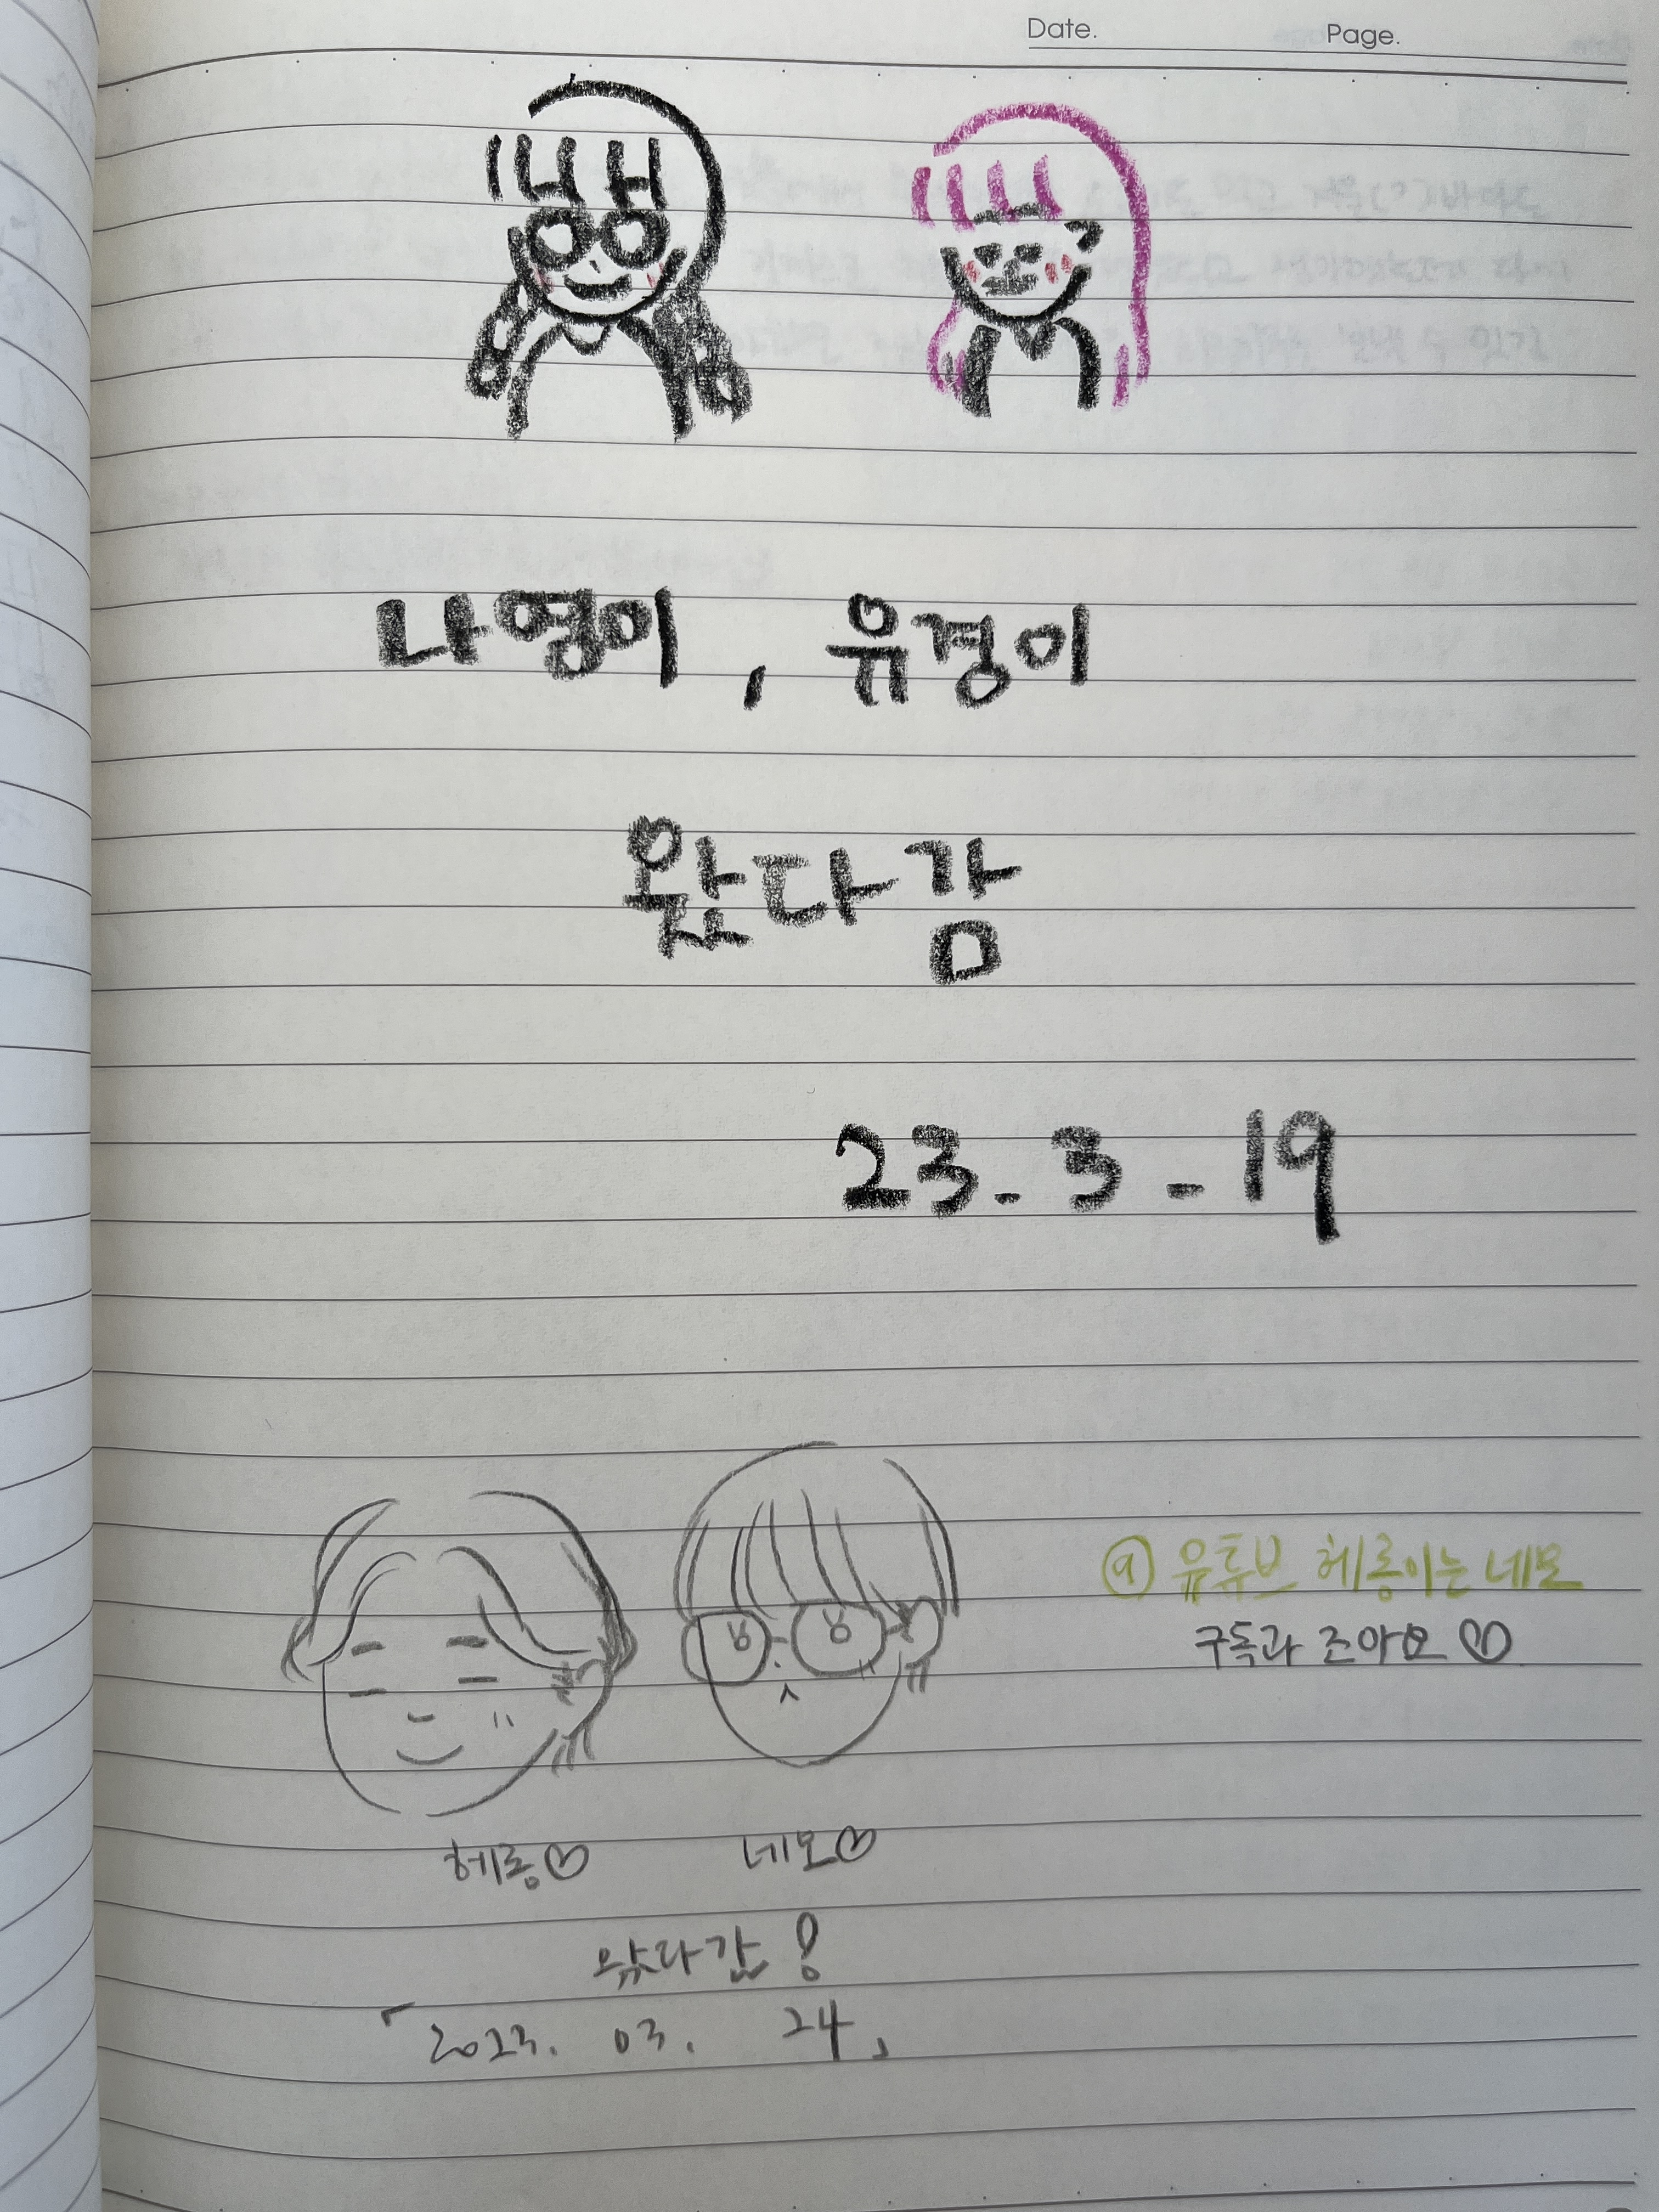 Date. Page.
나영이, 유경이
왔다감
23. 3. 19
@ 유튜브 헤롱이는 네모
구독과 조아요♡
헤롱♡ 네모♡
왔다감!
「2023. 03. 24」